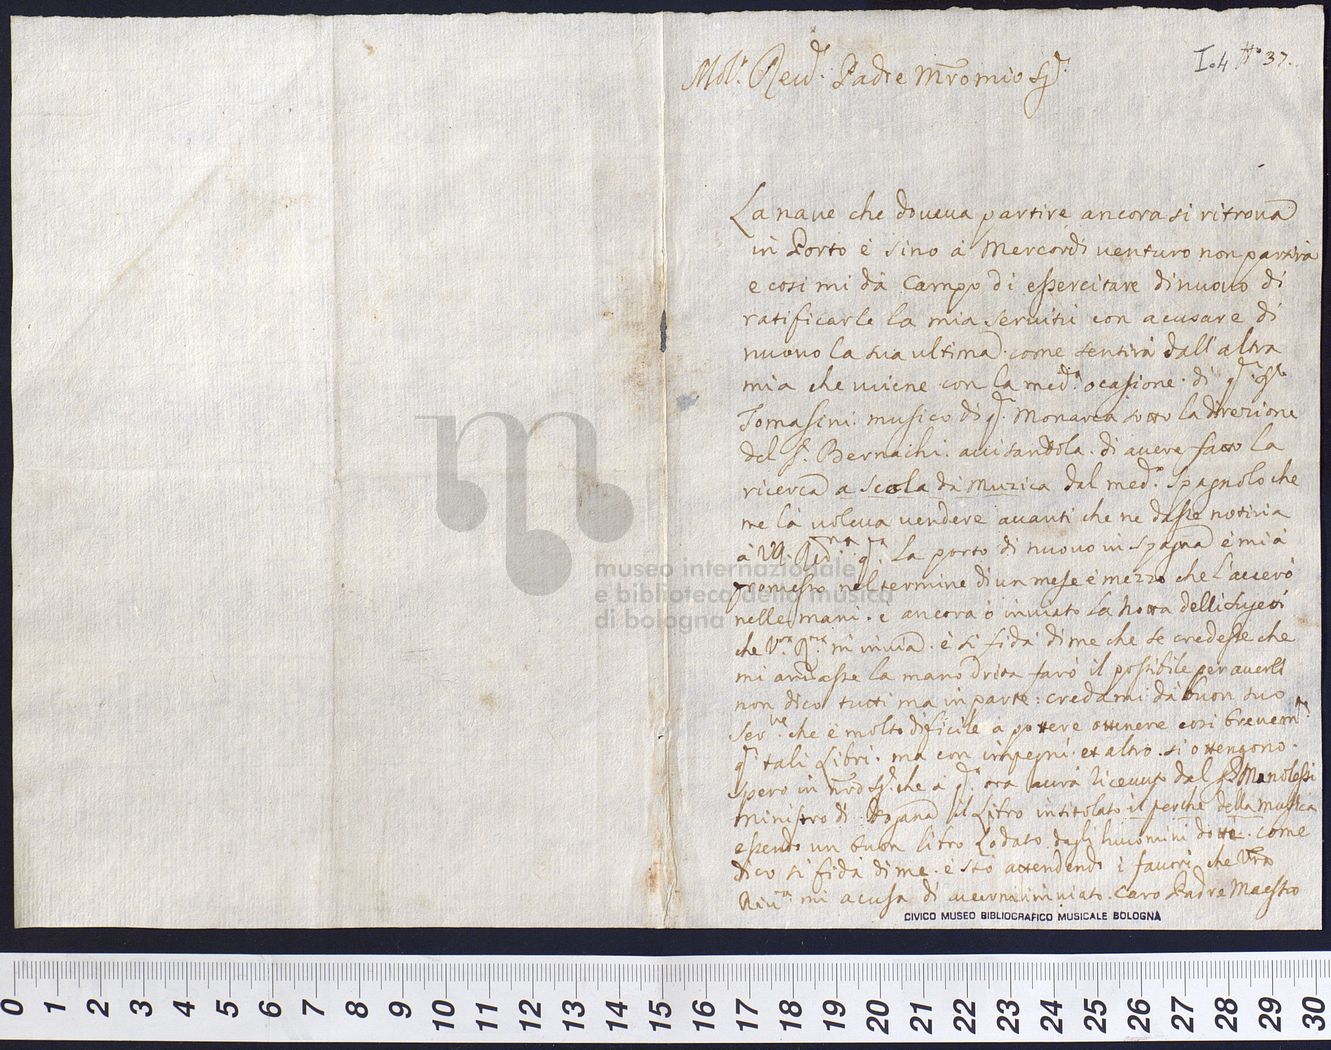 I.4 N° 37.
Mol.r Reud. Padre Mrō mio Sig.r
La naue che doueua partire ancora si ritroua
in Porto è sino à Mercordi venturo non partirà
e così mi dà Campo di essercitare di nuouo di
ratificarle la mia seruitù con acusare di
nuouo la sua ultima. come sentirà dall'altra
mia che uiene con la med.a ocasione di
Tomasini musico di q. Monarca sotto la direzione
del S. Bernachi. auisandola. di auere fatto la
ricerca a scola da Muzica dal med.o Spagnolo che
me la voleua vendere auanti che ne dasse notizia
à La porto di nuouo in Spagna è mi à
promesso nel termine di un mese è mezzo che l'auerò
nelle mani. è ancora ò inuiato la nota delli
che V.ra R.za m'inuia è si fida di me che se credesse che
mi andasse la mano drita farò il possibile per auerli
non dico tutti ma in parte: credami da buon suo
ser.re che è molto dificile à pottere ottenere così breuem.te
q. tali Libri. ma con impegni et altro. si ottengono.
spero in che à q. ora aurà riceuuto dal Manolessi
ministro di Dogana il Libro intitolato il perche della musica
essendo un buon libro Lodato dagli huomini dotti. come
dico si fida di me. è stò attendendo i fauori che V.ra
Riu.za mi acusa di auermi inuiato. Caro Padre Maestro
museo internazionale
e biblioteca della musica
di bologna
CIVICO MUSEO BIBLIOGRAFICO MUSICALE BOLOGNA
0 1 2 3 4 5 6 7 8 9 10 11 12 13 14 15 16 17 18 19 20 21 22 23 24 25 26 27 28 29 30